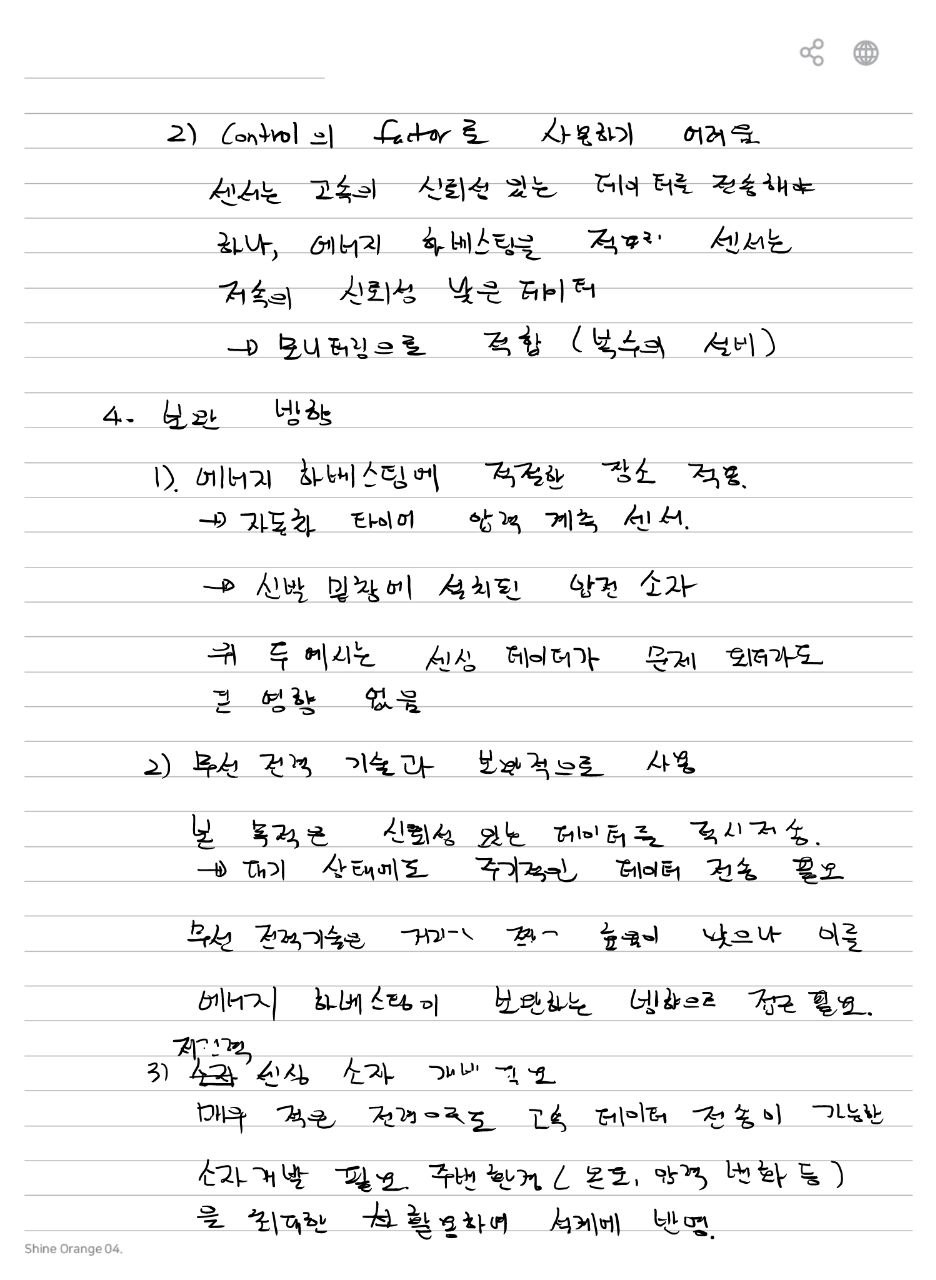 2) Control의 factor로 사용하기 어려움
센서는 고속의 신뢰성 있는 데이터를 전송해야
하나, 에너지 하베스팅을 센서는
저속의 신뢰성 낮은 데이터
→ 모니터링으로 적합 (복수의 설비)
4. 보완 방향
1). 에너지 하베스팅에 적절한 장소 적용.
→ 자동차 타이어 압력 계측 센서.
→ 신발 밑창에 설치된 압전 소자
위 두 예시는 센싱 데이터가 문제 되더라도
큰 영향 없음
2) 무선 전력 기술과 보완적으로 사용
본 목적은 신뢰성 있는 데이터를 적시 전송.
→ 대기 상태에도 주기적인 데이터 전송 필요
무선 전력기술은 거리가 효율이 낮으나 이를
에너지 하베스팅이 보완하는 방향으로 접근 필요.
저전력
3) 센싱 소자 개발 필요
매우 적은 전력으로도 고속 데이터 전송이 가능한
소자개발 필요. 주변 환경 (온도, 압력 변화 등)
을 최대한 활용하여 설계에 반영.
Shine Orange 04.